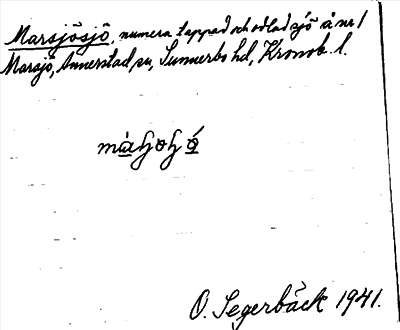 Marsjösjö, numera tappad och odlad sjö å nr 1
Marsjö, Annerstad sn, Sunnerbo hd, Kronob. l.
O. Segerbäck 1941.